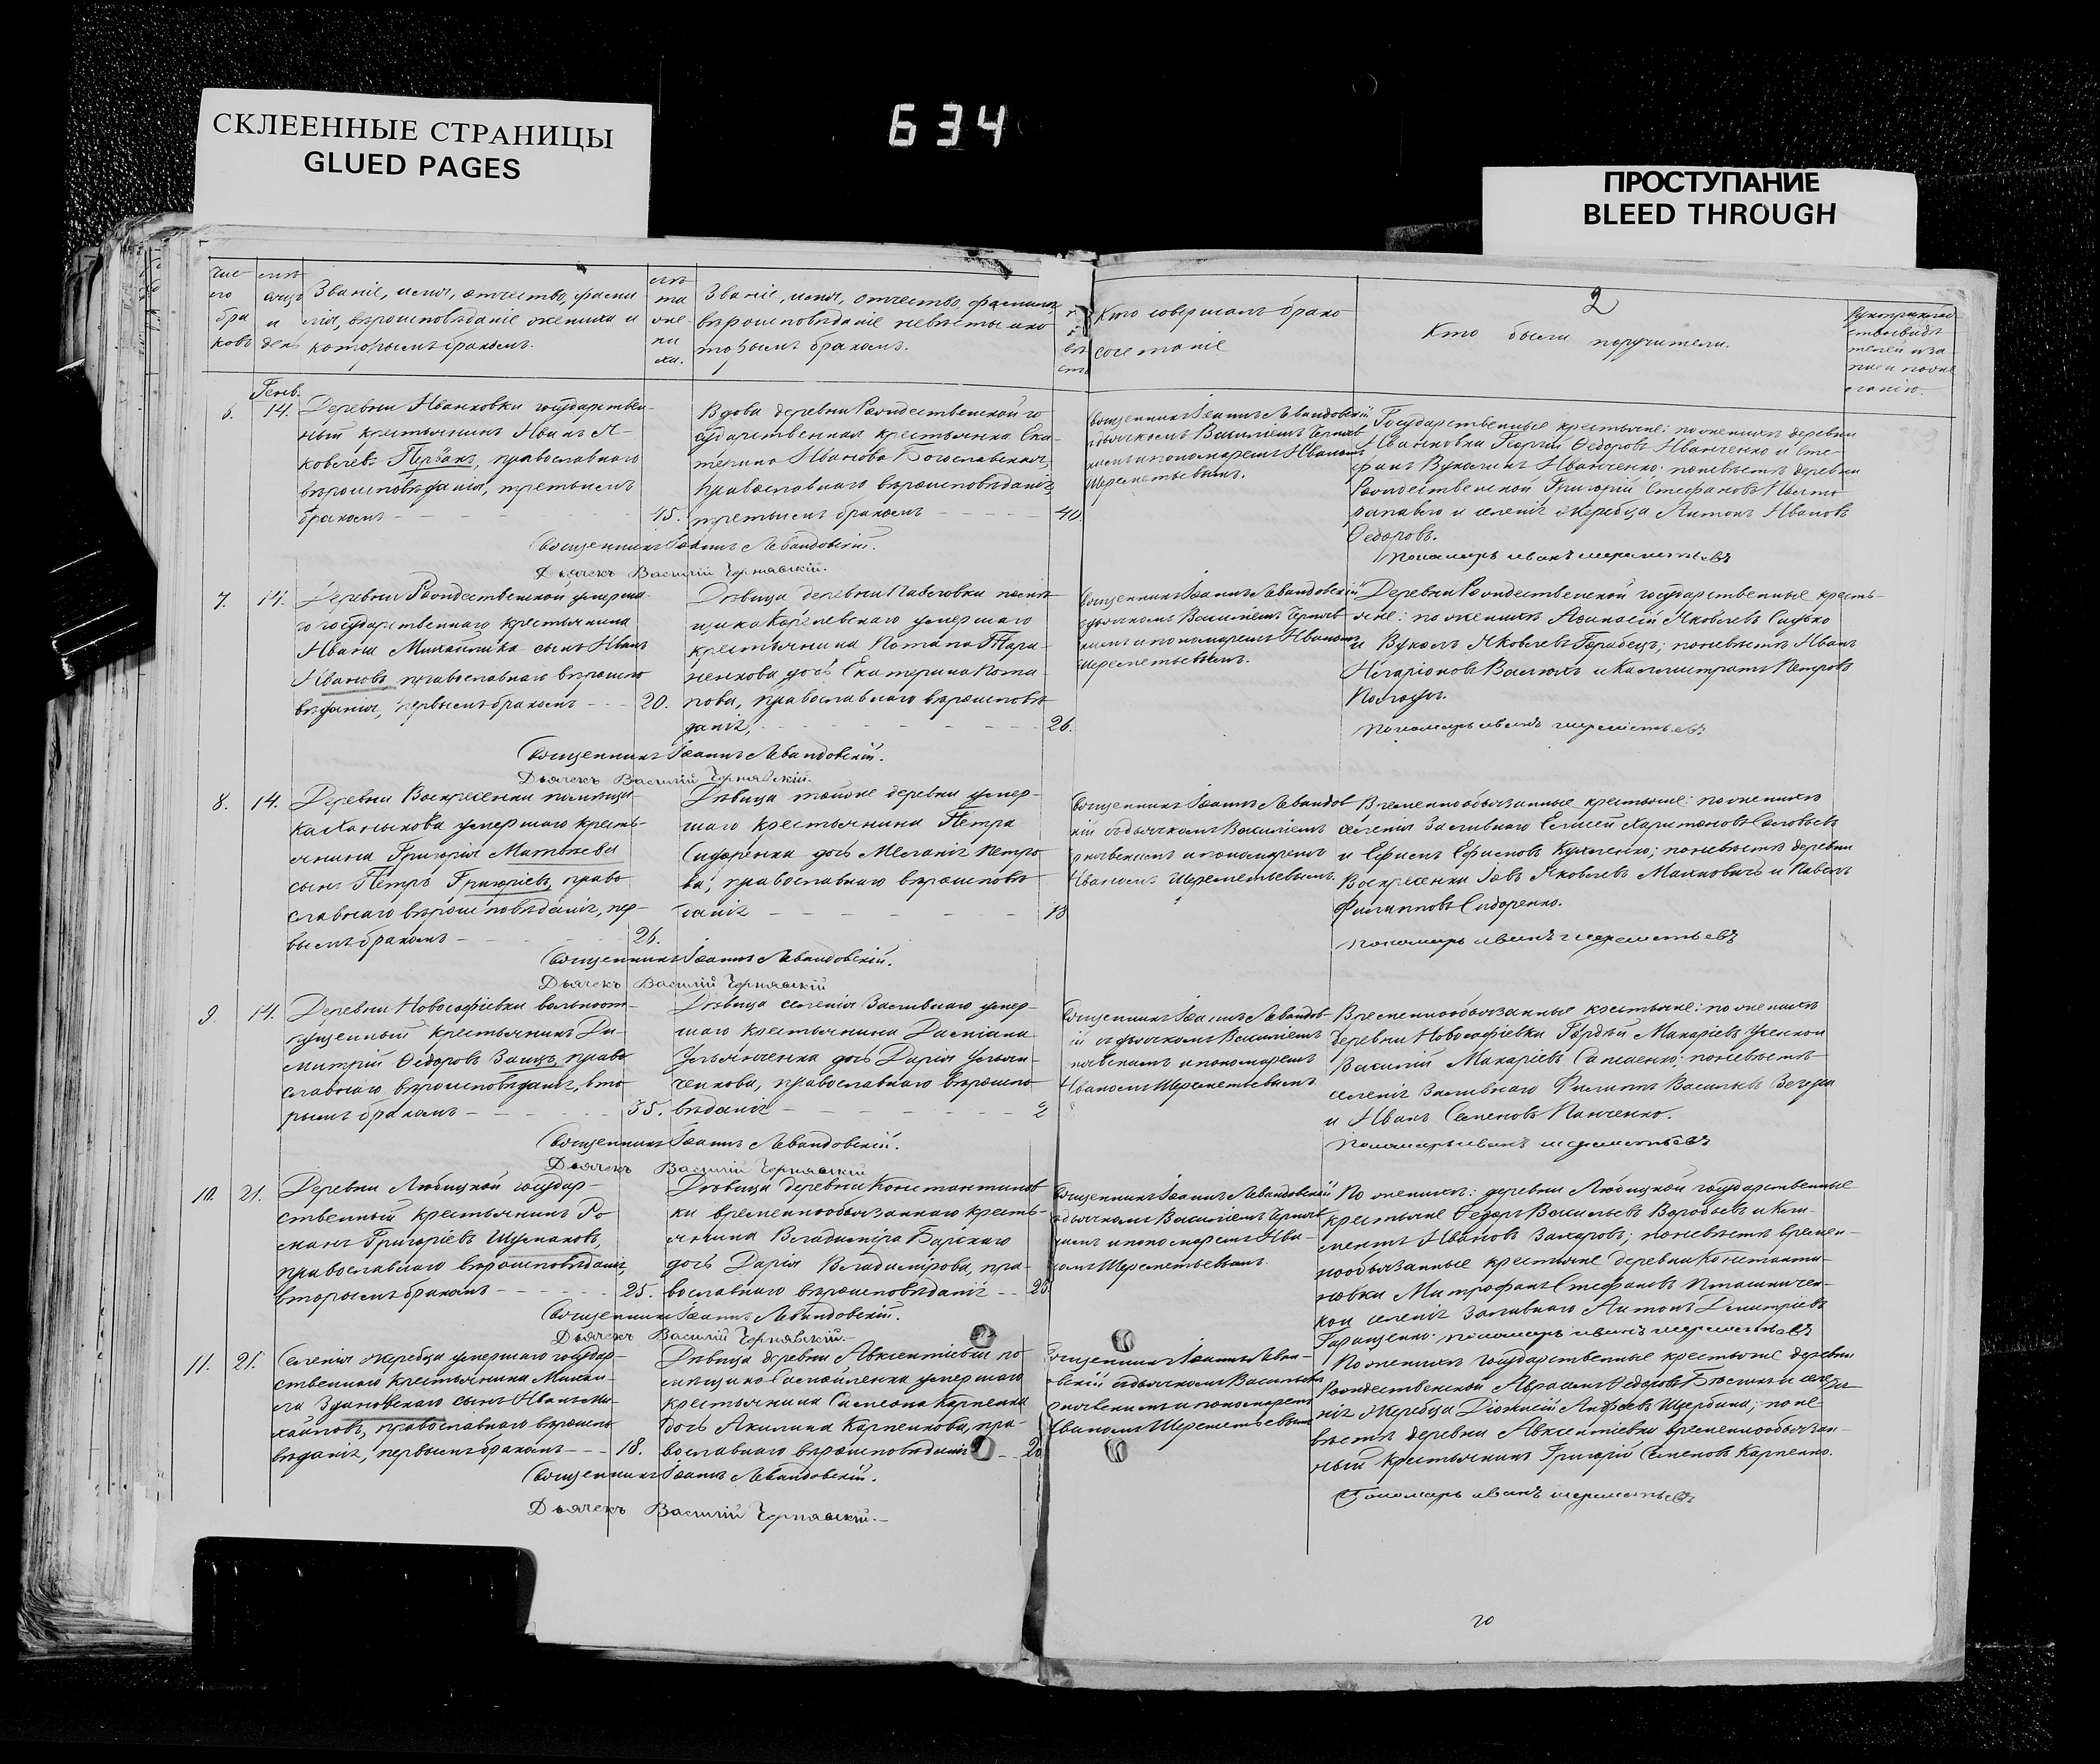 СКЛЕЕННЫЕ СТРАНИЦЫ
GLUED PAGES
634
ПРОСТУПАНИЕ
BLEED THROUGH
Званіе, имя, отчество, фами
лія, вѣроисповѣданіе жениха и
которымъ бракомъ.
Званіе, имя, отчество, фамилія,
вѣроисповѣданіе невѣсты и ко
торымъ бракомъ.
Кто совершалъ брако
сочетаніе
2
Кто были поручители.
Генв.
6. 14. Деревни Ивановки государствен-
ный крестьянинъ Иванъ Я-
ковлевъ православнаго
вѣроисповѣданія, третьимъ
бракомъ 45.
Вдова деревни Рождественской го
сударственная крестьянка Ека-
терина Иванова Богославская,
православнаго вѣроисповѣданія
третьимъ бракомъ 40.
Священникъ Іоаннъ Левандовскій
съ дьячкомъ Василіемъ Черняв
скимъ и пономаремъ Иваномъ
Шереметьевымъ.
Государственные крестьяне: по женихѣ деревни
Ивановки Георгій Ѳедоровъ Иванченко и Сте-
фанъ Иванченко; по невѣстѣ деревни
Рождественской Григорій Стефановъ
и селенія Жеребца Антонъ Ивановъ
Ѳедоровъ.
Пономарь иванъ шереметьевъ
Священникъ Іоаннъ Левандовскій.
Дьячекъ Василій Чернявскій.
7. 14. Деревни Рождественской умерша-
го государственнаго крестьянина
Ивана сынъ Иванъ
Ивановъ, православнаго вѣроиспо
вѣданія, первымъ бракомъ 20.
Дѣвица деревни Павловки помѣ
щика умершаго
крестьянина Потапа Тара-
ненкова дочь Екатерина Пота
пова, православнаго вѣроисповѣ
данія, 26.
Священникъ Іоаннъ Левандовскій
съ дьячкомъ Василіемъ Черняв
скимъ и пономаремъ Иваномъ
Шереметьевымъ.
Деревни Рождественской государственные кресть-
яне: по женихѣ Аѳанасій Яковлевъ
и Вуколъ Яковлевъ Горобецъ; по невѣстѣ Иванъ
Иларіоновъ и Каллистратъ Петровъ
Пономарь иванъ шереметьевъ
Священникъ Іоаннъ Левандовскій.
Дьячекъ Василій Чернявскій.
8. 14. Деревни Воскресенки помѣщи-
ка умершаго кресть-
янина Григорія
сынъ Петръ Григоріевъ, право
славнаго вѣроисповѣданія, пер-
вымъ бракомъ 26.
Дѣвица тойже деревни умер-
шаго крестьянина Петра
Сидоренка дочь Меланія Петро
ва, православнаго вѣроисповѣ
данія 18
Священникъ Іоаннъ Левандов
скій съ дьячкомъ Василіемъ
Чернявскимъ и пономаремъ
Иваномъ Шереметьевымъ.
Временнообязанные крестьяне: по женихѣ
селенія Заливнаго Елисей Харитоновъ Соловьевъ
и Ефимъ Ефимовъ по невѣстѣ деревни
Воскресенки Іовъ Яковлевъ и Павелъ
Филипповъ Сидоренко.
Пономарь иванъ шереметьевъ
Священникъ Іоаннъ Левандовскій.
Дьячекъ Василій Чернявскій
9. 14. Деревни Новософіевки вольноот-
пущенный крестьянинъ Ди-
митрій Ѳедоровъ Заецъ, право
славнаго вѣроисповѣданія, вто
рымъ бракомъ 35.
Дѣвица селенія Заливнаго умер-
шаго крестьянина Даміана
Ульянченка дочь Дарія Ульян-
ченкова, православнаго вѣроиспо
вѣданія 2
Священникъ Іоаннъ Левандов
скій съ дьячкомъ Василіемъ
Чернявскимъ и пономаремъ
Иваномъ Шереметьевымъ
Временнообязанные крестьяне: по женихѣ
деревни Новософіевки Гордѣй Макаріевъ
Василій Макаріевъ по невѣстѣ
селенія Заливнаго Филиппъ Васильевъ Вечера
и Иванъ Семеновъ Панченко.
Пономарь иванъ шереметьевъ
Священникъ Іоаннъ Левандовскій.
Дьячекъ Василій Чернявскій
10. 21. Деревни Любицкой государ-
ственный крестьянинъ Ро
манъ Григоріевъ Шумаковъ,
православнаго вѣроисповѣданія,
вторымъ бракомъ 25.
Дѣвица деревни Константинов
ки временнообязаннаго кресть-
янина Владиміра Барскаго
дочь Дарія Владимірова, пра-
вославнаго вѣроисповѣданія 25.
Священникъ Іоаннъ Левандовскій
съ дьячкомъ Василіемъ Черняв
скимъ и пономаремъ Ива-
номъ Шереметьевымъ.
По женихѣ: деревни Любицкой государственные
крестьяне Ѳедоръ Васильевъ Воробьевъ и Кли-
ментъ Ивановъ Захаровъ; по невѣстѣ времен-
нообязанные крестьяне деревни Константи-
новки Митрофанъ Стефановъ
селенія Заливнаго Антонъ Димитріевъ
Геращенко. Пономарь иванъ шереметьевъ
Священникъ Іоаннъ Левандовскій.
Дьячекъ Василій Чернявскій.
11. 21. Селенія Жеребца умершаго государ-
ственнаго крестьянина Михаи-
ла Здановскаго сынъ Иванъ Ми-
хайловъ, православнаго вѣроиспо
вѣданія, первымъ бракомъ 18.
Дѣвица деревни Авксентіевки по
мѣщика умершаго
крестьянина Симеона Карпенка
дочь Акилина Карпенкова, пра-
вославнаго вѣроисповѣданія 20
Священникъ Іоаннъ Леван-
довскій съ дьячкомъ Василіемъ
Чернявскимъ и пономаремъ
Иваномъ Шереметьевымъ
По женихѣ государственные крестьяне деревни
Рождественской Авраамъ Ѳедоровъ и селе
нія Жеребца Діонисій Андреевъ Щербина; по не
вѣстѣ деревни Авксентіевки временнообязан-
ный крестьянинъ Григорій Семеновъ Карпенко.
Пономарь иванъ шереметьевъ
Священникъ Іоаннъ Левандовскій.
Дьячекъ Василій Чернявскій.
20